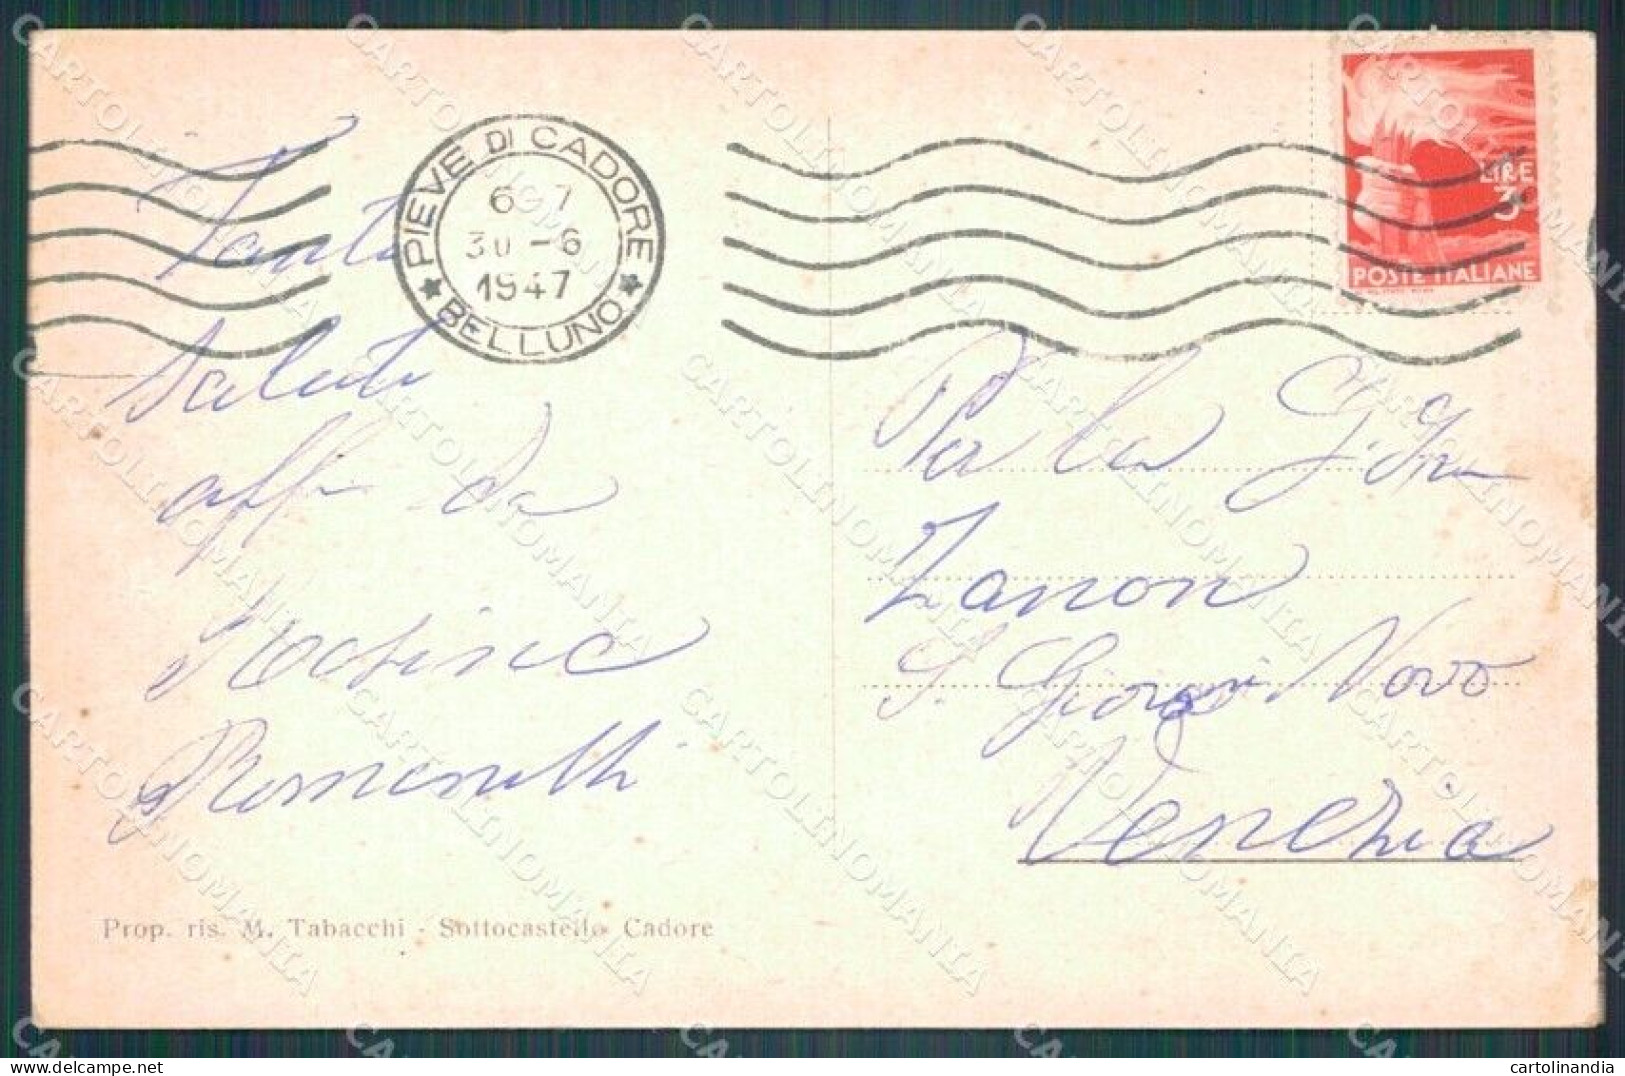 PIEVE DI CADORE
6 - 7
30 - 6
1947
★ BELLUNO ★
LIRE
3
POSTE ITALIANE
Tanti
saluti
aff. da
Per la
Zanon
S. Giorgio Novo
Venezia
Prop. ris. M. Tabacchi - Sottocastello Cadore
CARTOLINOMANIA
cartolinandia